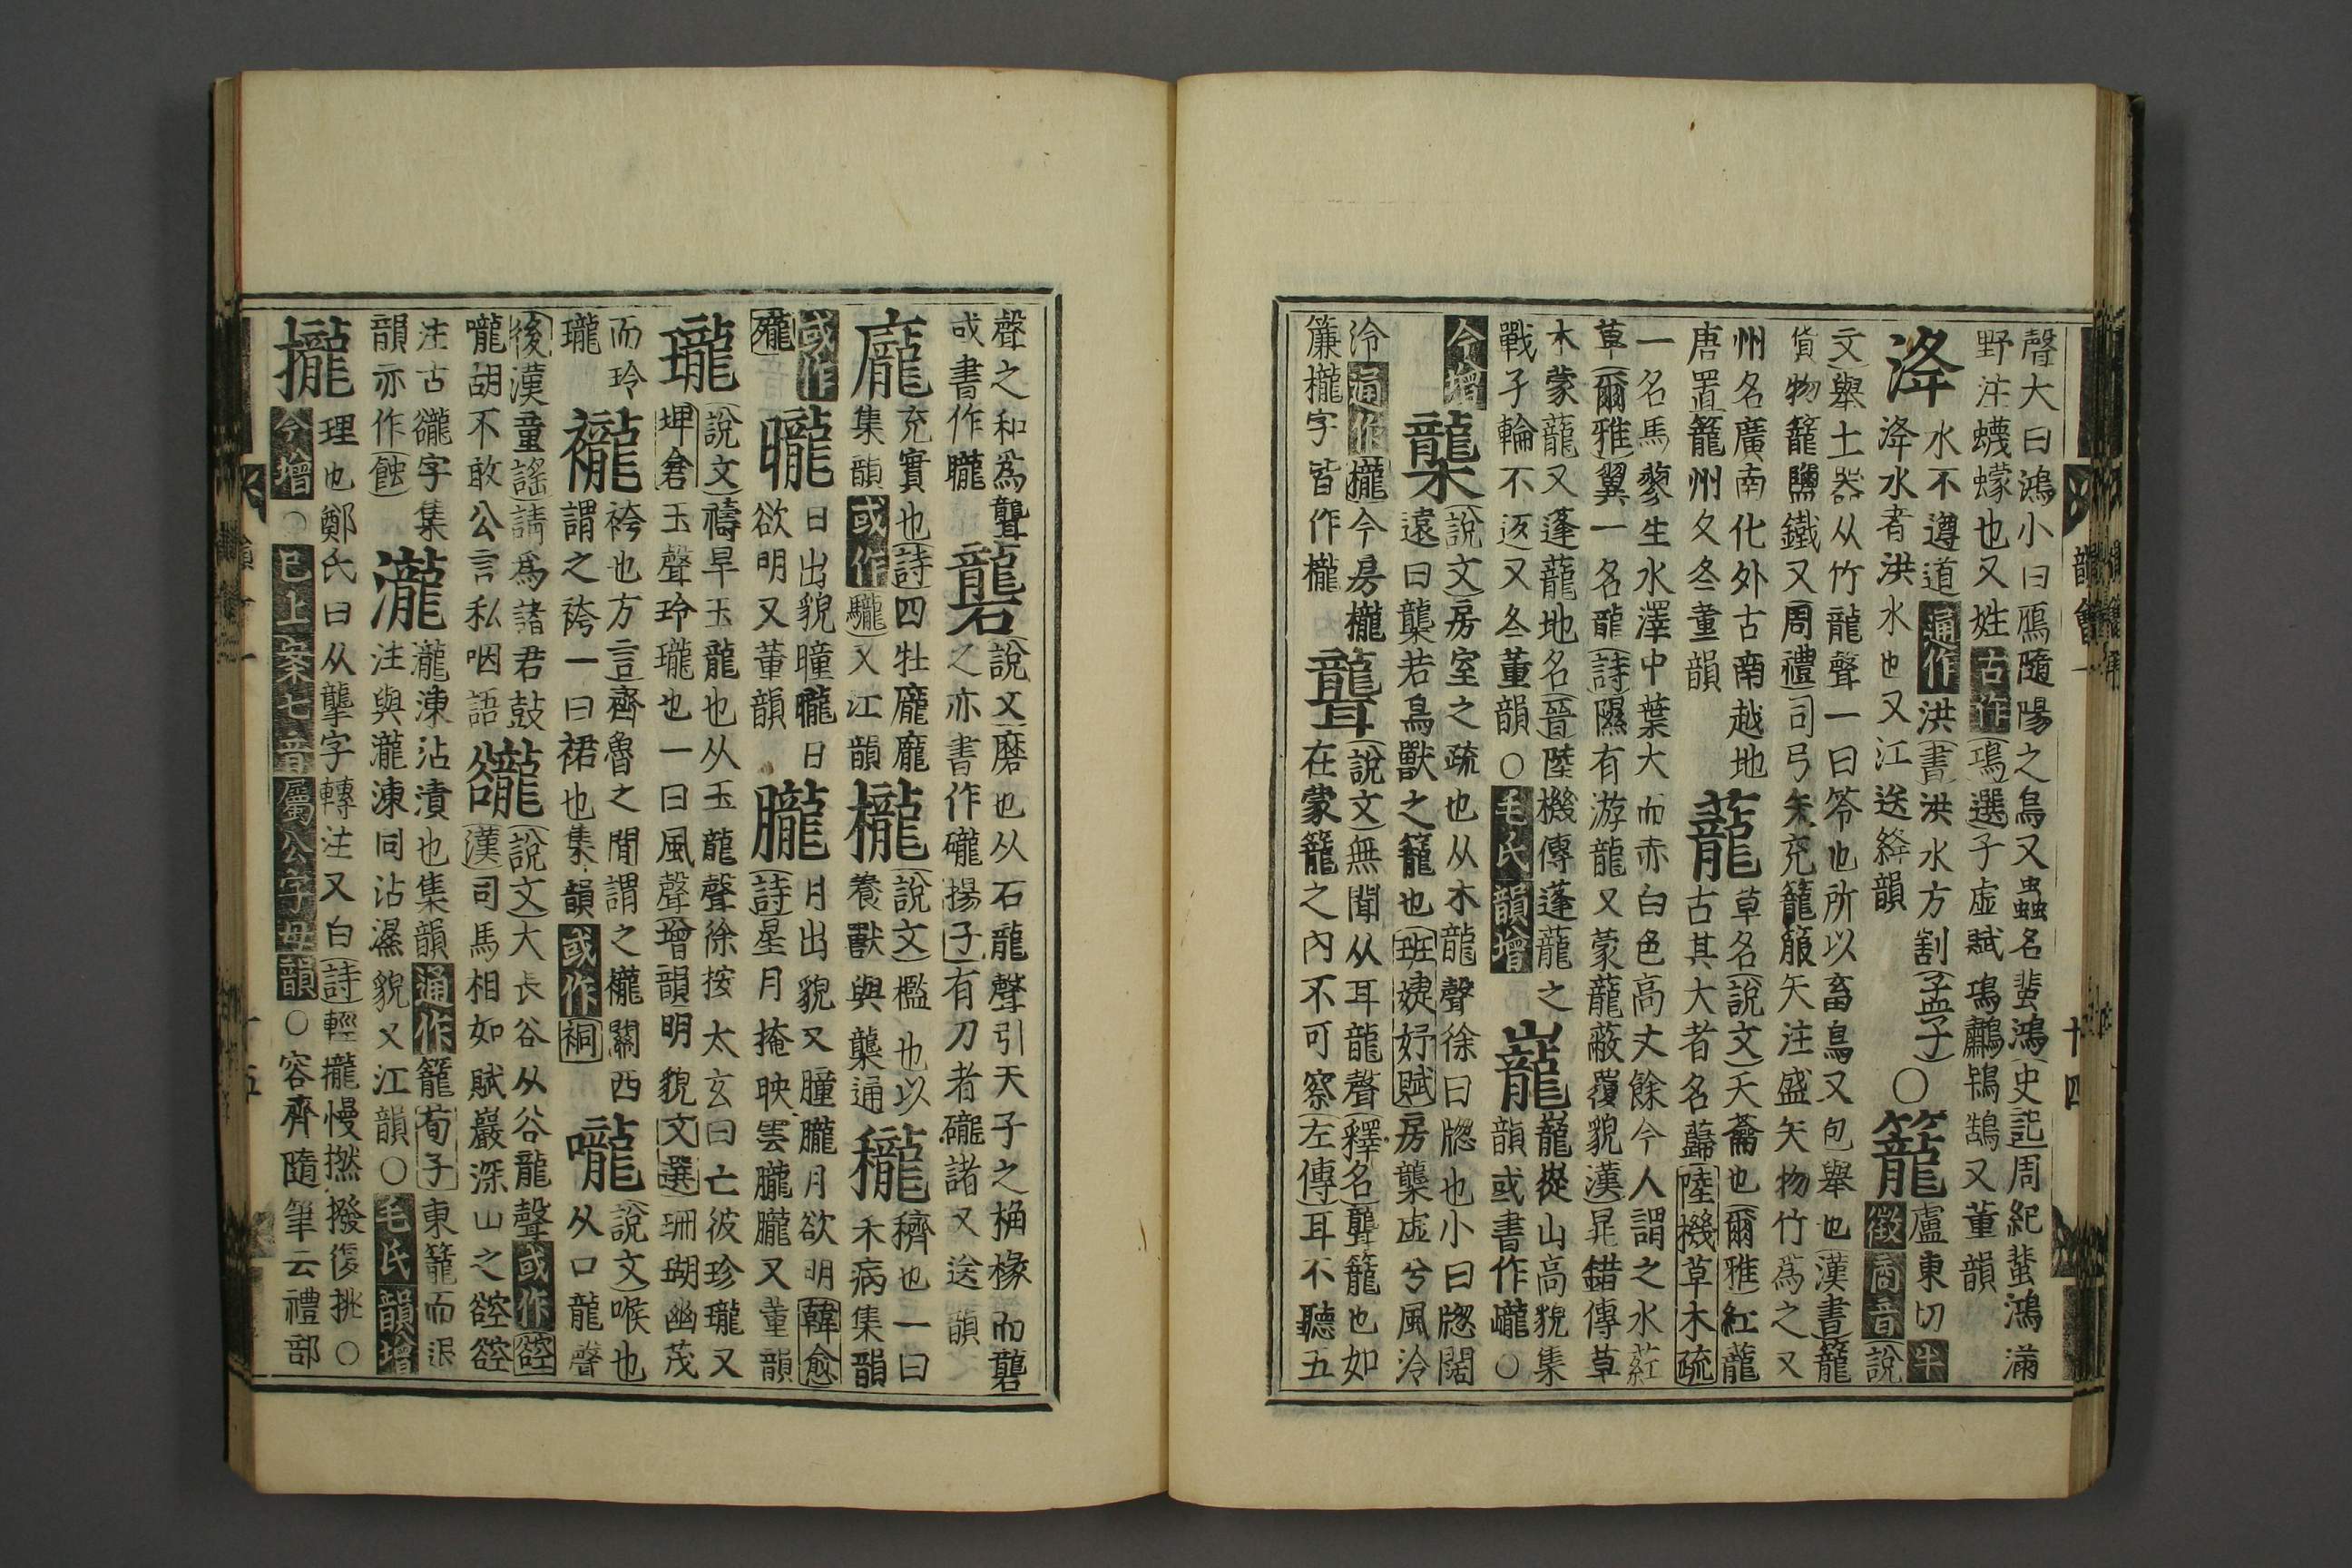 聲大曰鴻小曰鴈隨陽之鳥又蟲名蜚鴻史記周紀蜚鴻滿
野注蠛蠓也又姓古作鳿選子虛賦鳿鷫鵠鵠又董韻
洚水不遵道通作洪書洪水方割孟子
洚水者洪水也又江送絳韻○籠盧東切半
徵商音說
文舉土器从竹龍聲一曰笭也所以畜鳥又包舉也漢書籠
貨物籠鹽鐵又周禮司弓矢充籠箙矢注盛矢物竹爲之又
州名廣南化外古南越地
唐置籠州又冬董韻蘢草名說文天蘥也爾雅紅蘢
古其大者名蘬陸機草木疏
一名馬蓼生水澤中葉大而赤白色高丈餘今人謂之水葒
草爾雅翼一名龍詩隰有游龍又蒙蘢蔽覆貌漢鼂錯傳草
木蒙蘢又蓬蘢地名晉陸機傳蓬蘢之
戰子輪不返又冬董韻○毛氏韻增巃巃嵸山高貌集
韻或書作巄○
今增櫳說文房室之疏也从木龍聲徐曰牕也小曰牕闊
遠曰櫳若鳥獸之籠也班婕妤賦房櫳虛兮風泠
泠通作櫳今房櫳
簾櫳字皆作櫳聾說文無聞从耳龍聲釋名聾籠也如
在蒙籠之內不可察左傳耳不聽五
聲之和爲聾
或書作矓礱說文磨也从石龍聲引天子之桷椽而礱
之亦書作礲揚子有刀者礲諸又送韻
龐充實也詩四牡龐龐
集韻或作驡又江韻櫳說文檻也以
養獸與櫳通穲穧也一曰
禾病集韻
或作𥣭曨日出貌曈曨日
欲明又董韻朧月出貌又朣朧月欲明韓愈
詩星月掩映雲朣朧又董韻
瓏說文禱旱玉龍也从玉龍聲徐按太玄曰亡彼珍瓏又
埤倉玉聲玲瓏也一曰風聲增韻明貌文選珊瑚幽茂
而玲
瓏襱袴也方言齊魯之間謂之襱關西
謂之袴一曰裙也集韻或作裥嚨說文喉也
从口龍聲
後漢童謠請爲諸君鼓
嚨胡不敢公言私咽語谾說文大長谷从谷龍聲或作谾
漢司馬相如賦巖深山之谾谾
注古𧯆字集
韻亦作蝕瀧瀧涷沾漬也集韻通作籠荀子東籠而退
注與瀧涷同沾濕貌又江韻○毛氏韻增
攏理也鄭氏曰从聾字轉注又白詩輕攏慢撚撥復挑○
今增○已上案七音屬公字母韻○容齊隨筆云禮部
韻會一
十四
十五